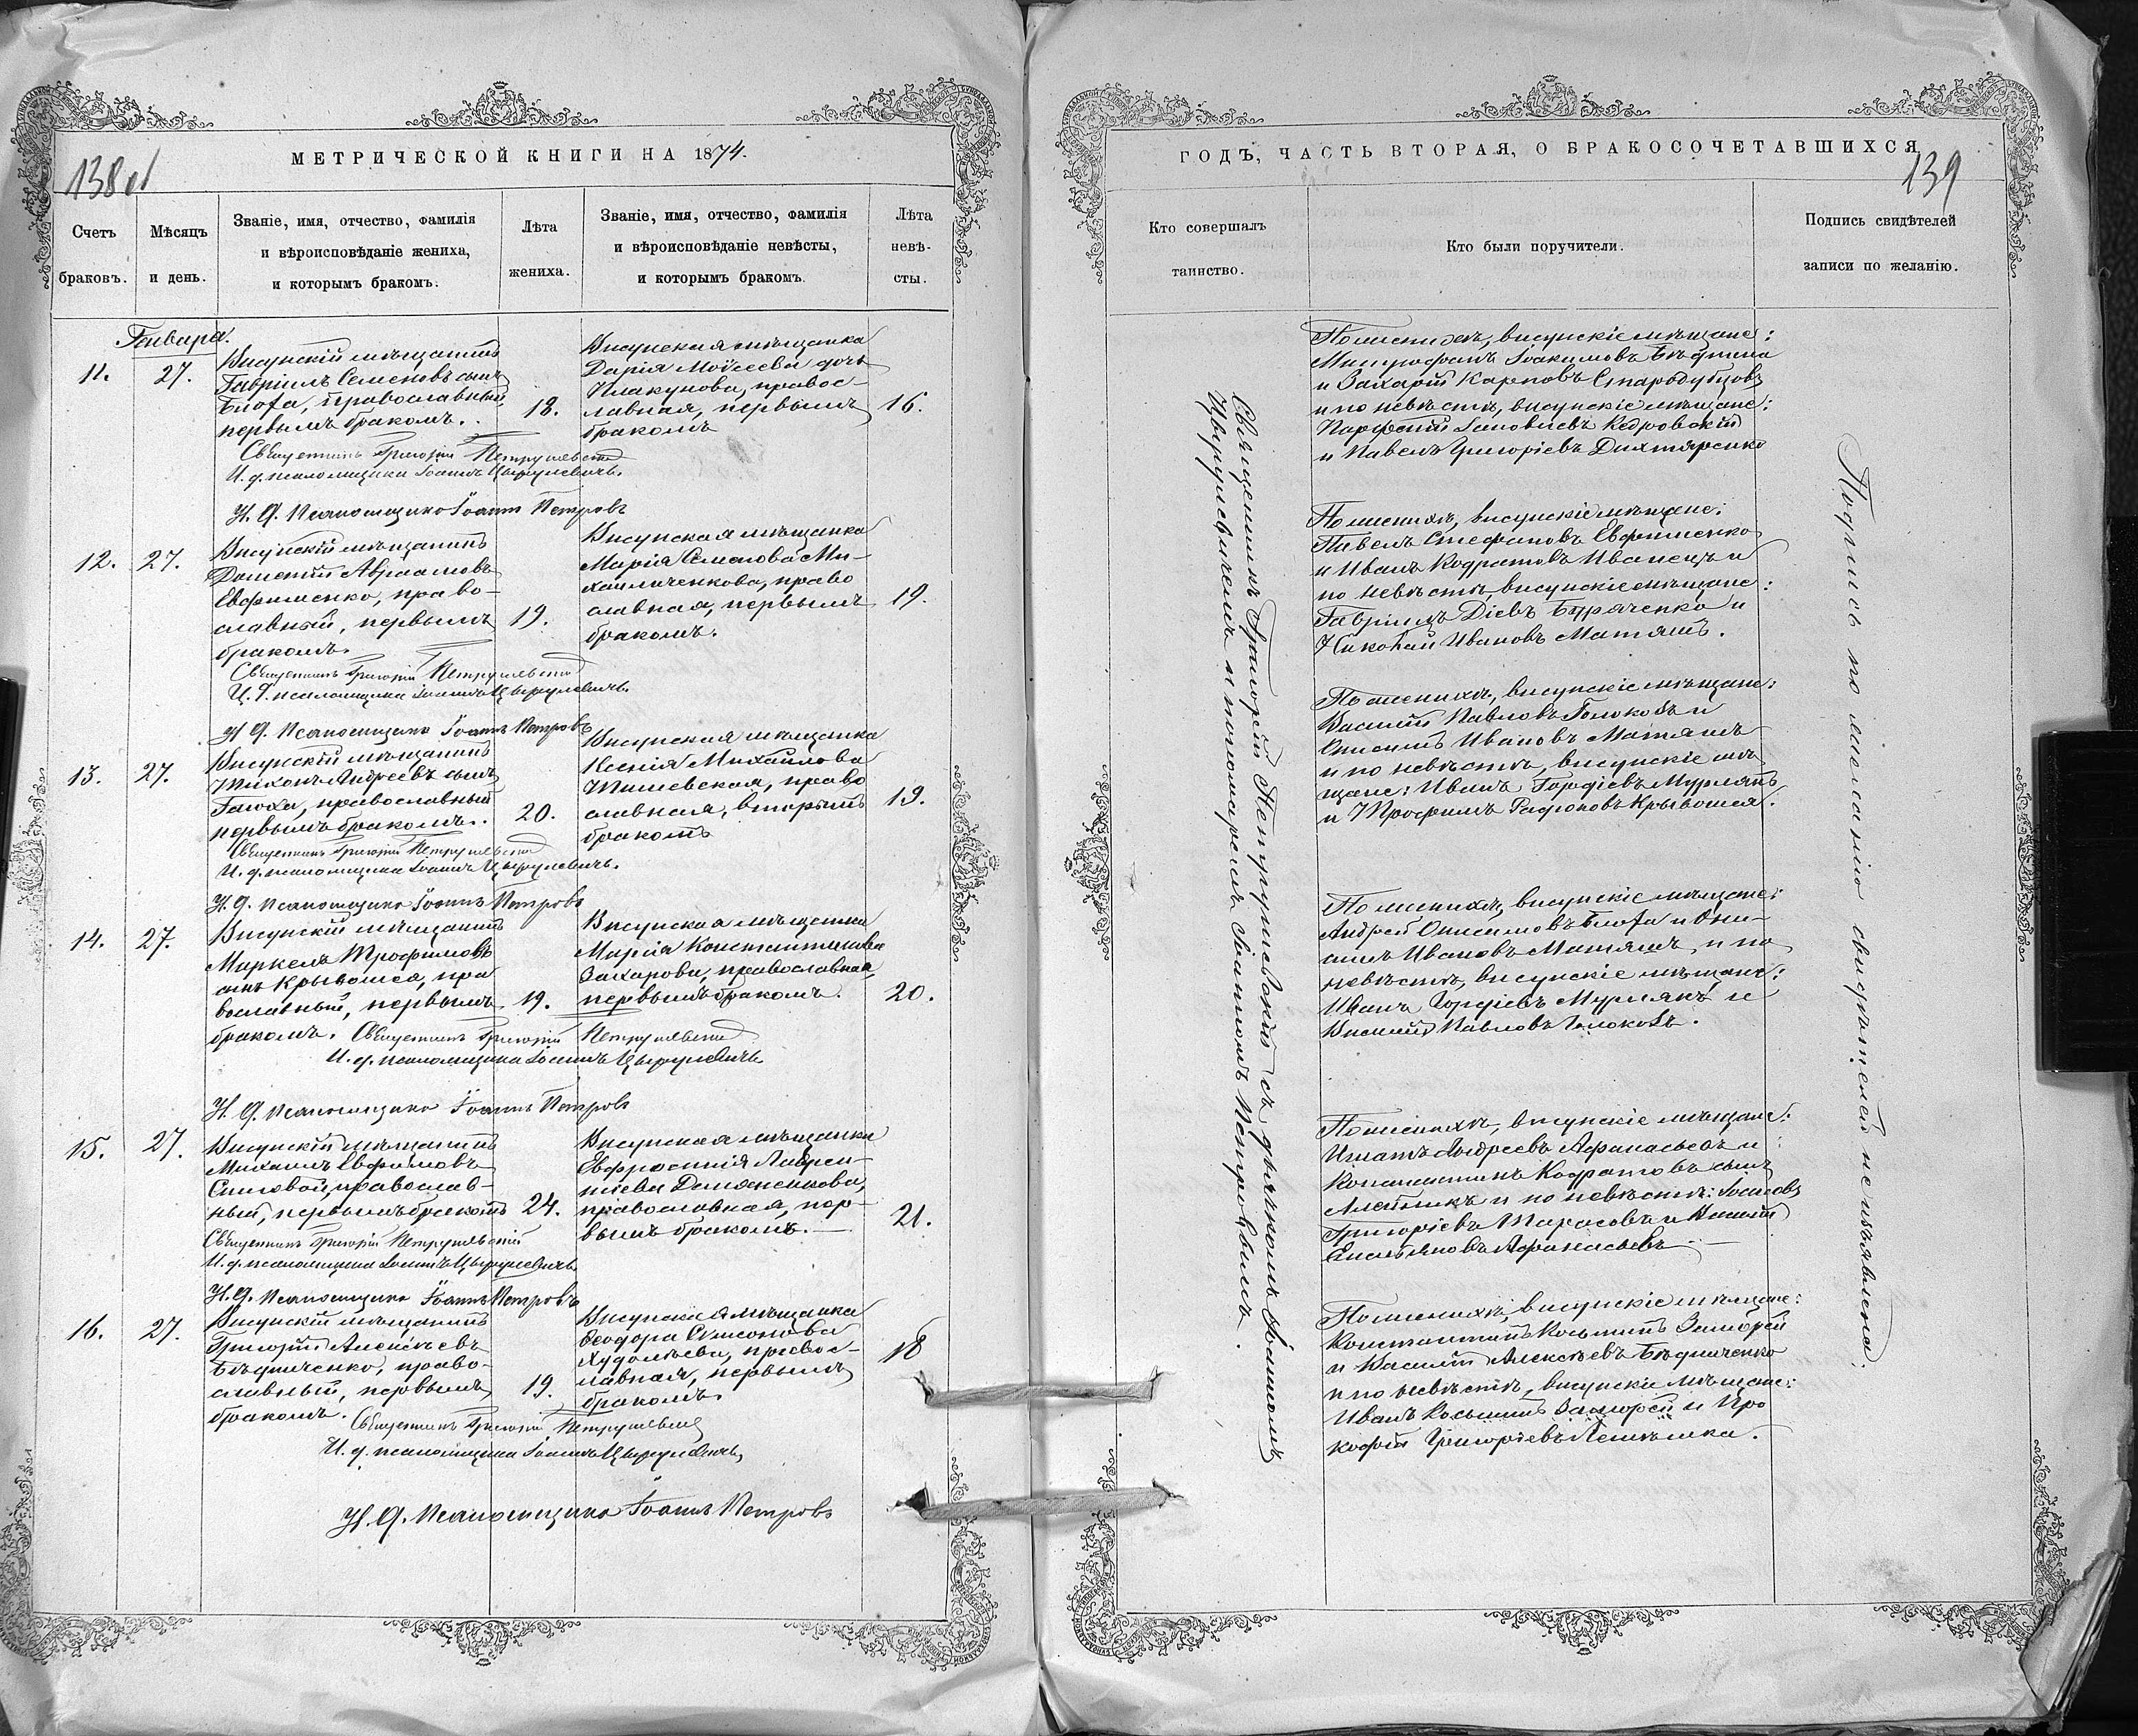 138 об
МЕТРИЧЕСКОЙ КНИГИ НА 1874.
Счетъ
браковъ.
Мѣсяцъ
и день.
Званіе, имя, отчество, фамилія
и вѣроисповѣданіе жениха,
и которымъ бракомъ.
Лѣта
жениха.
Званіе, имя, отчество, фамилія
и вѣроисповѣданіе невѣсты,
и которымъ бракомъ.
Лѣта
невѣ-
сты.
Января.
11.
27.
Висунскій мѣщанинъ
Гавріилъ Семеновъ сынъ
православный,
первымъ бракомъ.
18.
Висунская мѣщанка
Дарія Моѵсеева дочь
Плакунова, правос-
лавная, первымъ
бракомъ
16.
Священникъ Григорій Петрушевскій
И. д. псаломщика Іоаннъ Цырулевичъ.
И. д. Псаломщика Іоаннъ Петровъ
12.
27.
Висунскій мѣщанинъ
Дометій Авраамовъ
Евфименко, право-
славный, первымъ
бракомъ.
19.
Висунская мѣщанка
Марія Семенова Ми-
хайличенкова, право
славная, первымъ
бракомъ.
19.
Священникъ Григорій Петрушевскій
И. д. псаломщика Іоаннъ Цырулевичъ.
И. д. Псаломщика Іоаннъ Петровъ
13.
27.
Висунскій мѣщанинъ
Тихонъ Андреевъ сынъ
православный
первымъ бракомъ.
20.
Висунская мѣщанка
Ксенія Михайлова
право
славная, вторымъ
бракомъ
19.
Священникъ Григорій Петрушевскій
И. д. псаломщика Іоаннъ Цырулевичъ.
И. д. Псаломщика Іоаннъ Петровъ
14.
27.
Висунскій мѣщанинъ
Маркелъ Трофимовъ
сынъ Крывошея, пра
вославный, первымъ
бракомъ.
19.
Висунская мѣщанка
Марія Константинова
Захарова, православная,
первымъ бракомъ.
20.
Священникъ Григорій Петрушевскій
И. д. псаломщика Іоаннъ Цырулевичъ
И. д. Псаломщика Іоаннъ Петровъ
15.
27.
Висунскій мѣщанинъ
Михаилъ Евфимовъ
православ-
ный, первымъ бракомъ
24.
Висунская мѣщанка
Евфросинія Лаврен-
тіева Демяненкова,
православная, пер-
вымъ бракомъ.
21.
Священникъ Григорій Петрушевскій
И. д. псаломщика Іоаннъ Цырулевичъ
И. д. Псаломщика Іоаннъ Петровъ
16.
27.
Висунскій мѣщанинъ
Григорій Алексѣевъ
Бѣдниченко, право-
славный, первымъ
бракомъ.
19.
Висунская мѣщанка
Ѳеодора Самсонова
Худолѣева, правос-
лавная, первымъ
бракомъ.
18
Священникъ Григорій Петрушевскій
И. д. псаломщика Іоаннъ Цырулевичъ
И. д. Псаломщика Іоаннъ Петровъ
ГОДЪ, ЧАСТЬ ВТОРАЯ, О БРАКОСОЧЕТАВШИХСЯ
139
Кто совершалъ
таинство.
Кто были поручители.
Подпись свидѣтелей
записи по желанію.
Священникъ Григорій Петрушевскій съ дьячкомъ Іоанномъ
Цырулевичемъ и пономаремъ Іоанномъ Петровымъ.
По женихѣ, висунскіе мѣщане:
Митрофанъ Іоакимовъ
и Захарій Карповъ Стародубцовъ
и по невѣстѣ, висунскіе мѣщане:
Кодровскій
и Павелъ Григоріевъ Дихтяренко
По женихѣ, висунскіе мѣщане:
Павелъ Стефановъ Евфименко
и Иванъ Кодратовъ Иванецъ и
по невѣстѣ, висунскіе мѣщане:
Гавріилъ Діевъ Буряченко и
Николай Ивановъ Матяшъ.
По женихѣ, висунскіе мѣщане:
Василій Павловъ Голоковъ и
Онисимъ Ивановъ Матяшъ
и по невѣстѣ, висунскіе мѣ
щане: Иванъ Гордіевъ Мурлянъ
и Трофимъ Радіоновъ Крывошея.
По женихѣ, висунскіе мѣщане:
Андрей Онисимовъ и Они-
симъ Ивановъ Матяшъ, и по
невѣстѣ, висунскіе мѣщане:
Иванъ Гордіевъ Мурлянъ и
Василій Павловъ Голоковъ.
По женихѣ, висунскіе мѣщане:
Игнатъ Андреевъ Афанасьевъ и
Константинъ Кодратовъ сынъ
и по невѣстѣ:
Григоріевъ Тарасовъ и Василій
Емельяновъ Афанасьевъ
По женихѣ, висунскіе мѣщане:
Константинъ Козьминъ
и Василій Алексѣевъ Бѣдниченко
и по невѣстѣ, висунскіе мѣщане:
Иванъ Козьминъ и Про
кофій Григоріевъ
Подпись по желанію свидѣтелей не изъявлена.